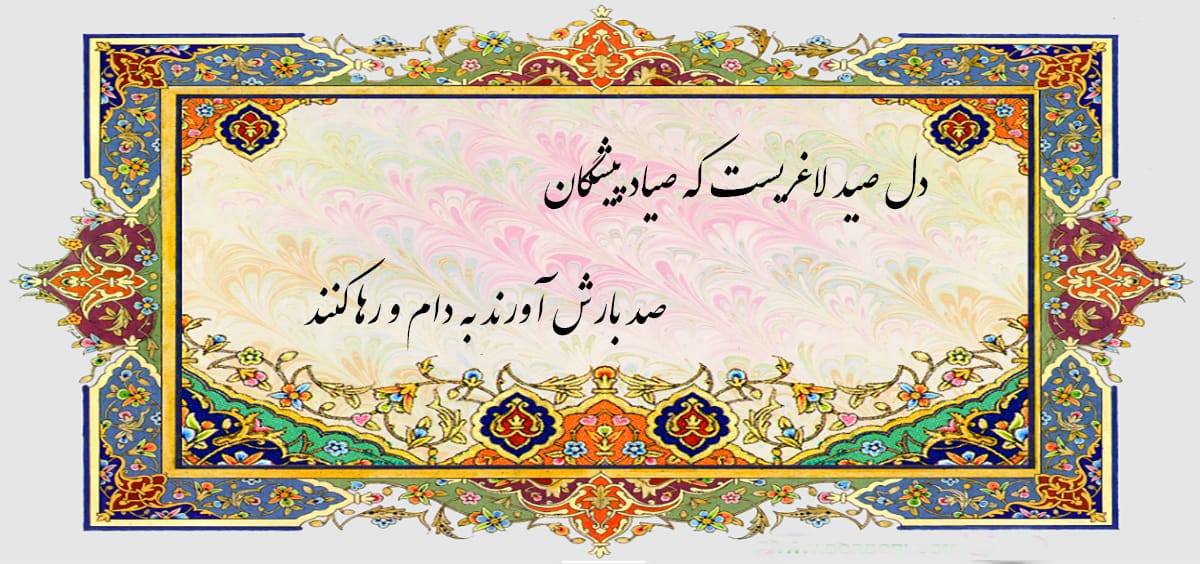 دل صید لاغریست که صیاد پیشگان
صد بارش آورند به دام و رها کنند